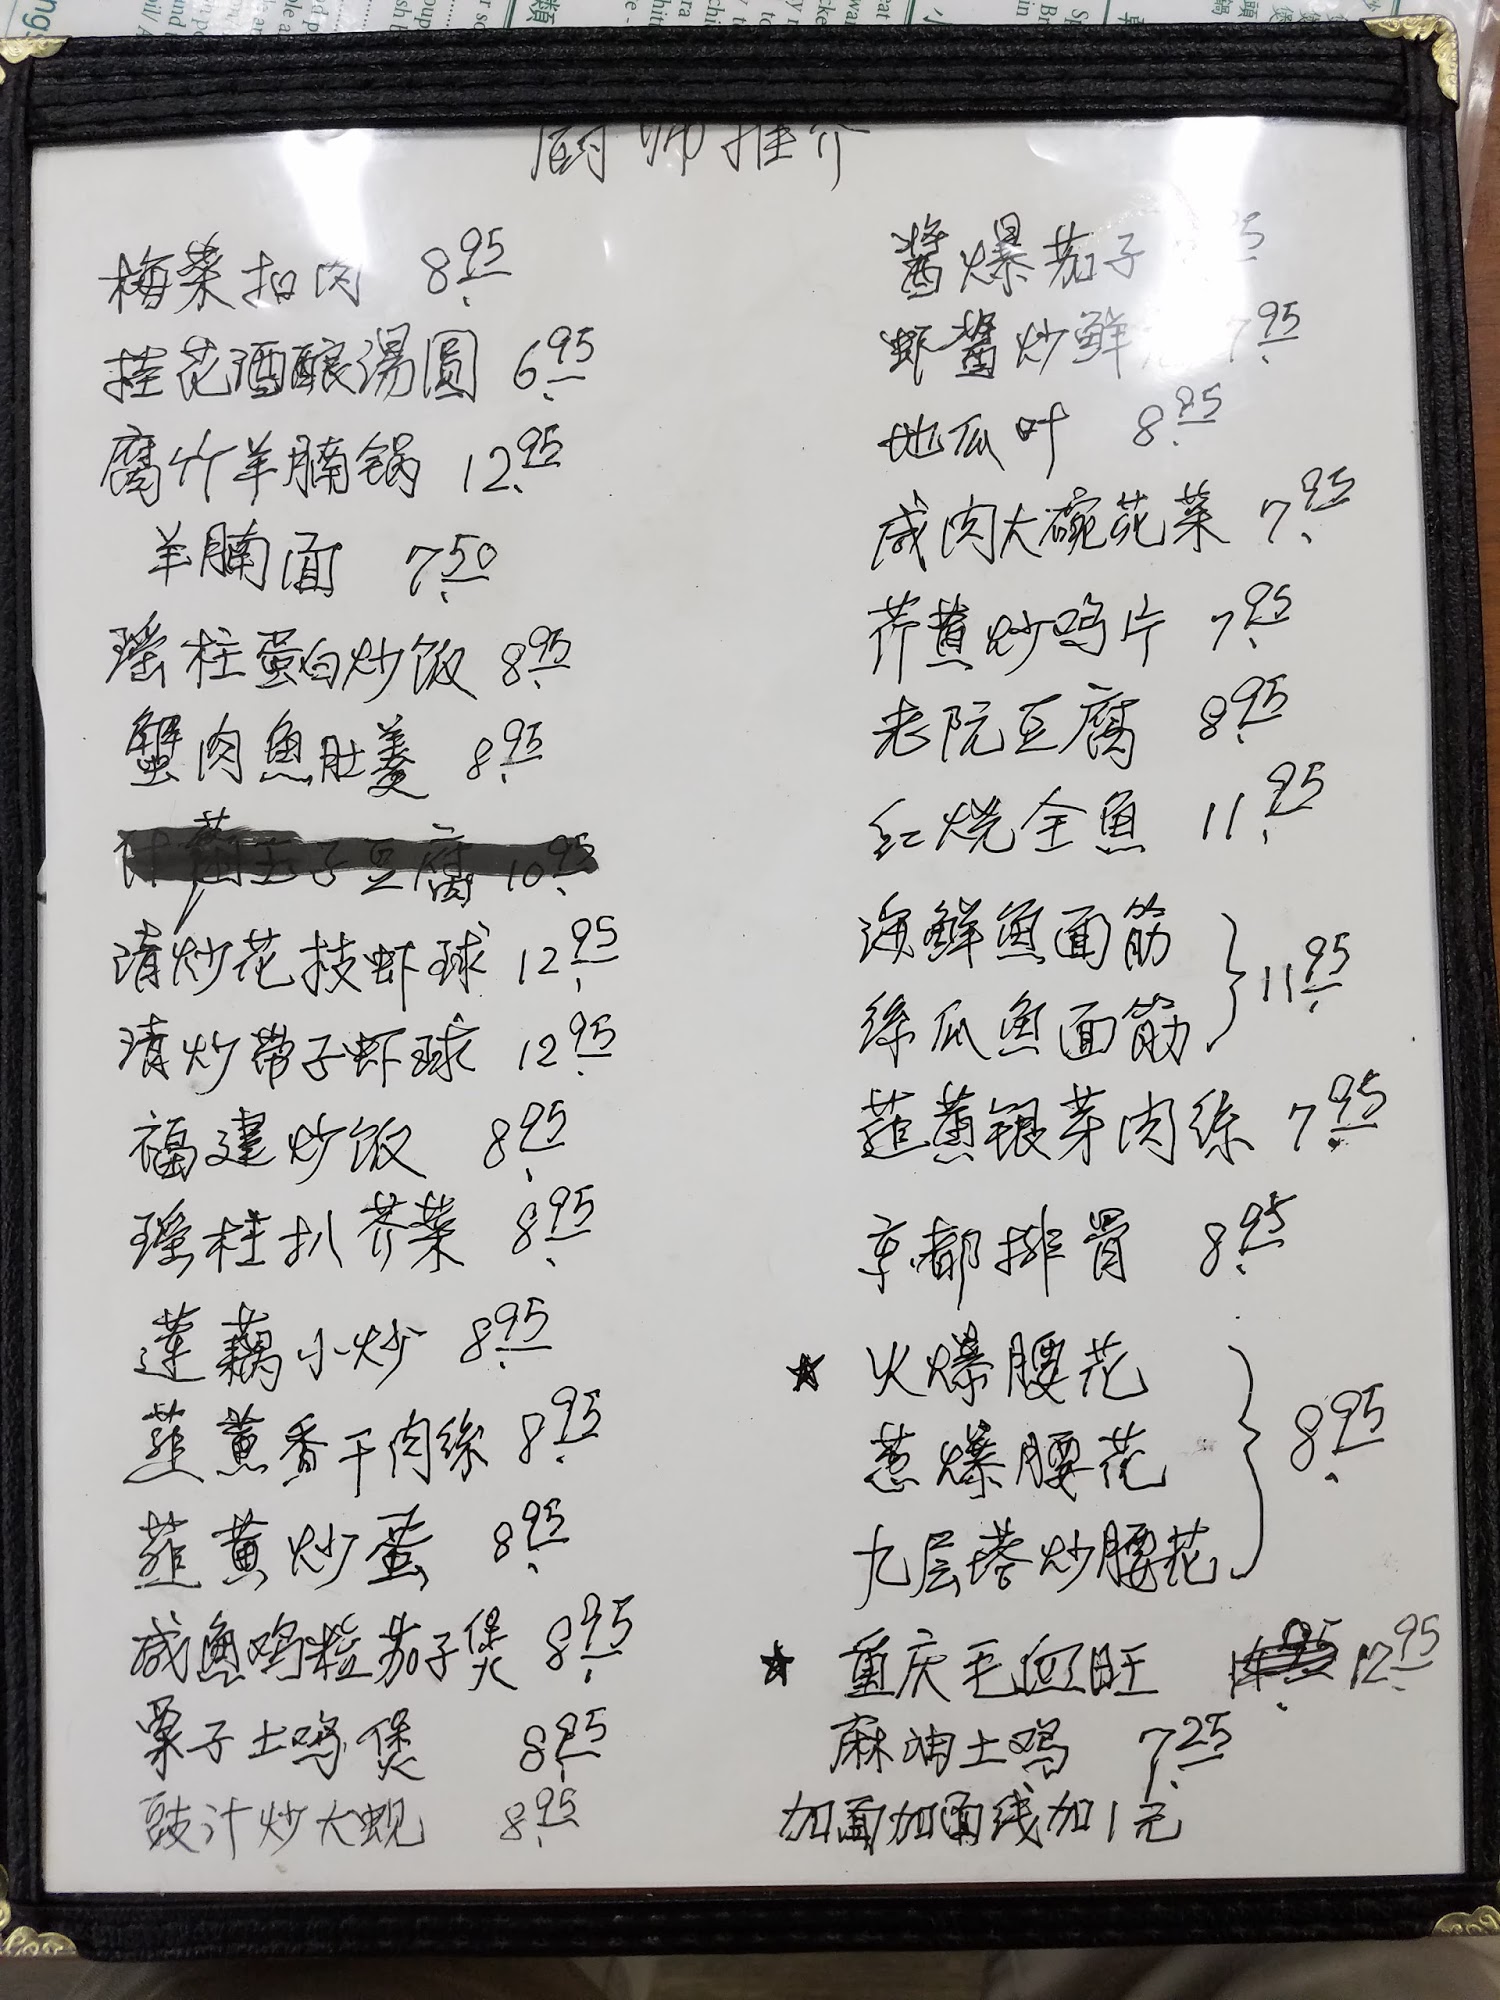 厨师推介
梅菜扣肉 8.95
桂花酒酿汤圆 6.95
腐竹羊腩锅 12.95
羊腩面 7.50
瑶柱蛋白炒饭 8.95
蟹肉魚肚羹 8.95
玉子豆腐 10.95
清炒花枝虾球 12.95
清炒带子虾球 12.95
福建炒饭 8.95
瑶柱扒芥菜 8.95
莲藕小炒 8.95
韮黄香干肉絲 8.95
韮黄炒蛋 8.95
咸魚鸡粒茄子煲 8.95
栗子土鸡煲 8.95
豉汁炒大蚬 8.95
醬爆茄子
虾醬炒鲜 7.95
地瓜叶 8.95
咸肉大碗花菜 7.95
芥黄炒鸡片 7.95
老阮豆腐 8.95
红烧全魚 11.95
海鲜魚面筋
絲瓜魚面筋 } 11.95
韮黄银芽肉絲 7.95
京都排骨 8.95
★ 火爆腰花
葱爆腰花 } 8.95
九层塔炒腰花
★ 重庆毛血旺 12.95
麻油土鸡 7.25
加面加面线加1元